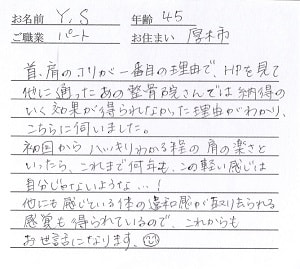 お名前 Y.S 年齢 45
ご職業 パート お住まい 厚木市
首、肩のコリが一番目の理由で、HPを見て
他に通ったあの整骨院さんでは納得の
いく効果が得られなかった理由がわかり、
こちらに伺いました。
初回から ハッキリわかる程の肩の楽さと
いったら、これまで何年も、この軽い感じは
自分じゃないような…!
他にも感じている体の違和感が取り去られる
感覚も得られているので、これからも
お世話になります。